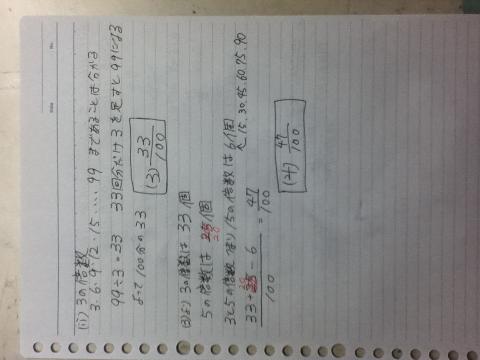 (ii) 3の倍数
3・6・9・12・15・・・・・99 まであることは分かる
99÷3=33 33回分だけ3を足すと99になる
よって100分の33
(3) 33/100
(3)より 3の倍数は 33個
5の倍数は 20個
3と5の倍数 つまり 15の倍数は6個
15.30.45.60.75.90
33+20-6/100 = 47/100
(4) 47/100